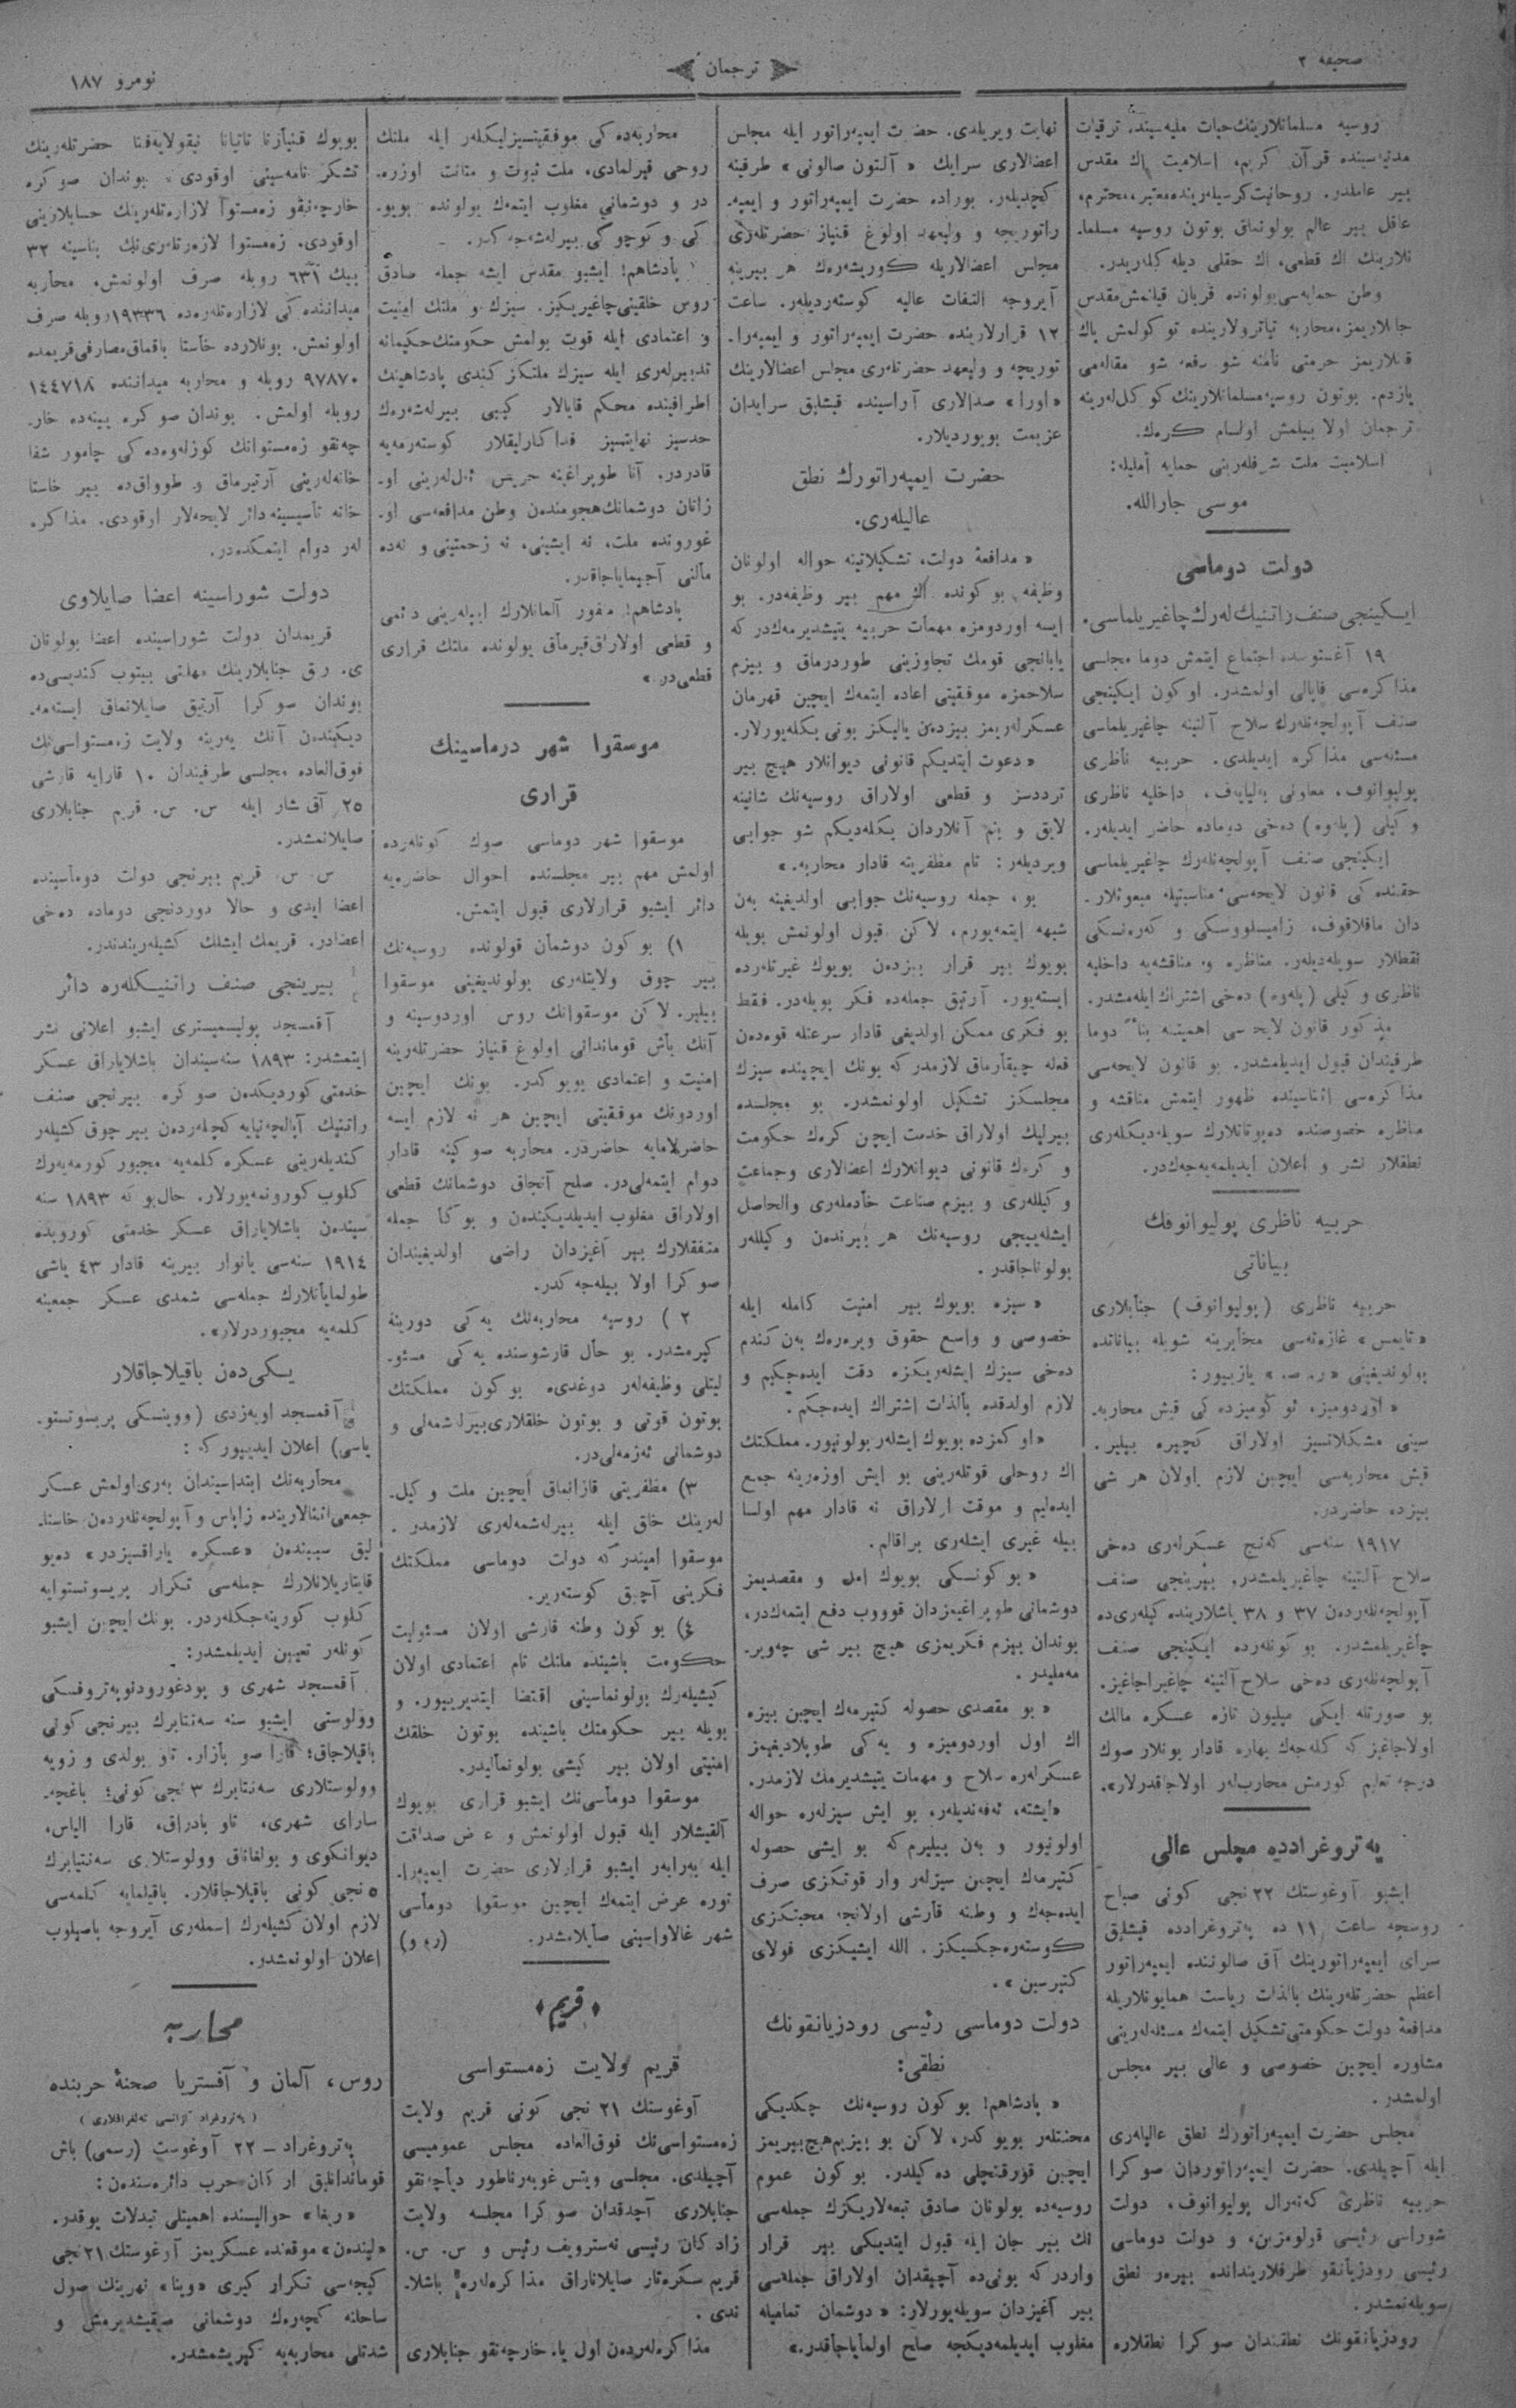 صحیفه ۲
ترجمان
نومرو ۱۸۷
روسیه مسلمانلارینك حیات ملیه‌سینده، ترقیات
مدنیه‌سینده قرآن کریم، اسلامیت اك مقدس
بیر عاملدر. روحانیت کرسیله‌رینده معتبر، محترم،
عاقل بیر عالم بولونماق بوتون روسیه مسلما-
نلارینك اك قطعی، اك حقلی دیله‌کله‌ریدر.
وطن حمایه‌سی یولونده قربان قیلانمش مقدس
جانلاریمز، محاربه تیاترولارینده توکولمش پاك
قانلاریمز حرمتی نامنه شو دفعه شو مقاله‌می
یازدم. بوتون روسیه مسلمانلارینك کوکل‌له‌رینه
ترجمان اولا بیلمش اولسام کره‌ك.
اسلامیت ملت شرفله‌رینی حمایه أملیله:
موسی جارالله.
دولت دوماسی
ایکینجی صنف راتنیك‌له‌رك چاغیریلماسی.
۱۹ آغستوسده اجتماع ایتمش دوما مجلسی
مذاکره‌سی قاپالی اولمشدر. او کون ایکینجی
صنف آپولچه‌نله‌رك سلاح آلتینه چاغیریلماسی
مسئله‌سی مذاکره ایدیلدی. حربیه ناظری
پولیوانوف، معاونی بەلیایەف، داخلیه ناظری
وکیلی (پلەوە) دەخی دوماده حاضر ایدیلەر.
ایکینجی صنف آپولچه‌نله‌رك چاغیریلماسی
حقنده کی قانون لایحه‌سی مناسبتیله مبعوثلار-
دان ماقلاقوف، زامیسلووسکی و کەرەنسکی
نطقلار سویله‌دیله‌ر. مناظره و مناقشه‌یه داخلیه
ناظری وکیلی (پلەوە) دەخی اشتراك ایله‌مشدر.
مذکور قانون لایحه‌سی اهمیتینه بناً دوما
طرفیندان قبول ایدیلمشدر. بو قانون لایحه‌سی
مذاکره‌سی اثناسینده ظهور ایتمش مناقشه و
مناظره خصوصنده دەپوتاتلارك سویله‌دیکله‌ری
نطقلار نشر و اعلان ایدیلمه‌یه‌جه‌کدر.
حربیه ناظری پولیوانوفك
بیاناتی
حربیه ناظری (پولیوانوف) جنابلاری
«تایمس» غازه‌ته‌سی مخابرینه شویله بیاناتده
بولوندیغینی «ر. ص.» یازییور:
«اوردومیز، ئو کومیزده کی قیش محاربه-
سینی مشکلاتسیز اولاراق کچیره بیلیر.
قیش محاربه‌سی ایچین لازم اولان هر شی
بیزده حاضردر.
۱۹۱۷ سنه‌سی کنج عسکرله‌ری دەخی
سلاح آلتینه چاغیریلمشدر. بیرینجی صنف
آپولچه‌نله‌ردەن ۳۷ و ۳۸ یاشلارینده کیله‌ری ده
چاغیریلمشدر. بو کونله‌رده ایکینجی صنف
آپولچه‌نله‌ری دەخی سلاح آلتینه چاغیراجاغیز.
بو صورتله ایکی میلیون تازه عسکره مالك
اولاجاغیز که کله‌جه‌ك بهاره قادار بونلار صوك
درجه تعلیم کورمش محارب‌له‌ر اولاجاقدرلار».
پەتروغرادده مجلس عالی
ایشبو آوغوستك ۲۲ نجی کونی صباح
روسجه ساعت ۱۱ ده پەتروغرادده قیشلق
سرای ایمپەراتورینك آق صالوننده ایمپەراتور
اعظم حضرتله‌رینك بالذات ریاست همایونلاریله
مدافعهٔ دولت حکومتی تشکیل ایتمه‌ك مسئله‌له‌رینی
مشاوره ایچین خصوصی و عالی بیر مجلس
اولمشدر.
مجلس حضرت ایمپەراتورك نطق عالیله‌ری
ایله آچیلدی. حضرت ایمپەراتوردان صوکرا
حربیه ناظری کەنەرال پولیوانوف، دولت
شوراسی رئیسی قولومزین، و دولت دوماسی
رئیسی رودزیانقو طرفلاریندانده بیره‌ر نطق
سویله‌نمشدر.
رودزیانقونك نطقیندان صوکرا نطقلاره
نهایت ویریلدی. حضرت ایمپەراتور ایله مجلس
اعضالاری سرایك «آلتون صالونی» طرفینه
کچدیله‌ر. بوراده حضرت ایمپەراتور و ایمپە-
راتوریچه و ولیعهد اولوغ قنیاز حضرتله‌ری
مجلس اعضالاریله کوریشه‌ره‌ك هر بیرینه
آیروجه التفات عالیه کوسته‌ردیله‌ر. ساعت
۱۲ قرارلارینده حضرت ایمپەراتور و ایمپەرا-
توریچه و ولیعهد حضرتله‌ری مجلس اعضالارینك
«اورا» صدالاری آراسینده قیشلق سرایدان
عزیمت بویوردیلار.
حضرت ایمپەراتورك نطق
عالیله‌ری.
«مدافعهٔ دولت، تشکیلاتینه حواله اولونان
وظیفه، بو کونده اك مهم بیر وظیفه‌در. بو
ایسه اوردومزه مهمات حربیه یتیشدیرمه‌ك‌در که
یابانجی قومك تجاوزینی طوردرماق و بیزم
سلاحمزه موفقیتی اعاده ایتمه‌ك ایچین قهرمان
عسکرله‌ریمز بیزدەن یالیکز بونی بکله‌یورلار.
«دعوت ایتدیکم قانونی دیوانلار هیچ بیر
ترددسز و قطعی اولاراق روسیه‌نك شانینه
لایق و بنم آنلاردان بکله‌دیکم شو جوابی
ویردیله‌ر: تام مظفریته قادار محاربه.»
بو، جمله روسیه‌نك جوابی اولدیغینه بەن
شبهه ایتمه‌یورم، لاکن قبول اولونمش بویله
بویوك بیر قرار بیزدەن بویوك غیرتله‌رده
ایسته‌یور. آرتیق جمله‌ده فکر بویله‌در. فقط
بو فکری ممکن اولدیغی قادار سرعتله قوه‌دەن
فعله چیقارماق لازمدر که بونك ایچینده سیزك
مجلسکز تشکیل اولونمشدر. بو مجلسده
بیرلیك اولاراق خدمت ایچین کرەك حکومت
و کرەك قانونی دیوانلارك اعضالاری وجماعت
وکیلله‌ری و بیزم صناعت خادمله‌ری والحاصل
ایشله‌ییجی روسیه‌نك هر بیرندەن وکیللەر
بولوناجاقدر.
«سیزه بویوك بیر امنیت کامله ایله
خصوصی و واسع حقوق ویره‌ره‌ك بەن کندم
دەخی سیزك ایشله‌ریکزه دقت ایده‌جکیم و
لازم اولدقده بالذات اشتراك ایده‌جکم.
«اوکمزده بویوك ایشله‌ر بولونیور. مملکتك
اك روحلی قوتله‌رینی بو ایش اوزه‌رینه جمع
ایده‌لیم و موقت اولاراق نه قادار مهم اولسا
بیله غیری ایشله‌ری براقالم.
«بو کونسکی بویوك امل و مقصدیمز
دوشمانی طوپراغیمزدان قوووب دفع ایتمه‌ك‌در،
بوندان بیزم فکریمزی هیچ بیر شی چه‌ویر-
مه‌ملیدر.
«بو مقصدی حصوله کتیرمه‌ك ایچین بیزه
اك اول اوردومیزه و یه‌کی طوپلادیغیمز
عسکرله‌ره سلاح و مهمات یتیشدیرمك لازمدر.
«ایشته، ئەفەندیلەر، بو ایش سیزله‌ره حواله
اولونیور و بەن بیلیرم که بو ایشی حصوله
کتیرمه‌ك ایچین سیزله‌ر وار قوتکزی صرف
ایده‌جه‌ك و وطنه قارشی اولانجه محبتکزی
کوسته‌ره‌جکسکز. الله ایشیکزی قولای
کتیرسین».
دولت دوماسی رئیسی رودزیانقونك
نطقی:
«پادشاهم! بو کون روسیه‌نك چکدیکی
محنتله‌ر بویوکدر، لاکن بو بیزیم هیچ بیریمز
ایچین قورقنچلی ده‌کیلدر. بو کون عموم
روسیه‌ده بولونان صادق تبعه‌لاریکزك جمله‌سی
تك بیر جان ایله قبول ایتدیکی بیر قرار
واردر که بونی‌ده آچیقدان اولاراق جمله‌سی
بیر آغیزدان سویله‌یورلار: «دوشمان تمامیله
مغلوب ایدیلمه‌دیکجه صلح اولمایاجاقدر.»
محاربه‌ده کی موفقیتسیزلیکله‌ر ایله ملتك
روحی قیرلمادی، ملت ثبوت و متانت اوزره-
در و دوشمانی مغلوب ایتمه‌ك یولونده بویو-
کی و کوچوکی بیرله‌شه‌جه‌کدر.
پادشاهم! ایشبو مقدس ایشه جمله صادق
روس خلقینی چاغیریکیز. سیزك و ملتك امنیت
و اعتمادی ایله قوت بولمش حکومتك حکیمانه
تدبیرله‌ری ایله سیزك ملتکز کندی پادشاهینك
اطرافینده محکم قایالار کیبی بیرله‌شه‌ره‌ك
حدسیز نهایتسیز فداکارلیقلار کوسته‌رمه‌یه
قادردر. آنا طوپراغینه حریص ئەل‌له‌رینی او-
زاتان دوشمانك هجومندەن وطن مدافعه‌سی او-
غورونده ملت، نه ایشینی، نه زحمتینی و نه‌ده
مالنی آجیمایاجاقدر.
پادشاهم! مغرور آلمانلارك ایپله‌رینی دئمی
و قطعی اولاراق قیرماق یولونده ملتك قراری
قطعی‌در.»
موسقوا شهر دوماسینك
قراری
موسقوا شهر دوماسی صوك کونله‌رده
اولمش مهم بیر مجلسنده احوال حاضره‌یه
دائر ایشبو قرارلاری قبول ایتمش.
۱) بو کون دوشمان قولونده روسیه‌نك
بیر چوق ولایتله‌ری بولوندیغینی موسقوا
بیلیر. لاکن موسقوانك روس اوردوسینه و
آنك باش قوماندانی اولوغ قنیاز حضرتله‌رینه
امنیت و اعتمادی بویوکدر. بونك ایچین
اوردونك موفقیتی ایچین هر نه لازم ایسه
حاضرلامایه حاضردر. محاربه صوکینه قادار
دوام ایتمه‌لی‌در. صلح آنجاق دوشمانك قطعی
اولاراق مغلوب ایدیلدیکیندەن و بوکا جمله
متفقلارك بیر آغیزدان راضی اولدیغیندان
صوکرا اولا بیله‌جه‌کدر.
۲) روسیه محاربه‌نك یه‌کی دورینه
کیرمشدر. بو حال قارشوسنده یه‌کی مسئو-
لیتلی وظیفه‌له‌ر دوغدی. بو کون مملکتك
بوتون قوتی و بوتون خلقلاری بیرله‌شمه‌لی و
دوشمانی ئەزمه‌لی‌در.
۳) مظفریتی قازانماق ایچین ملت وکیل-
له‌رینك خلق ایله بیرله‌شمه‌له‌ری لازمدر.
موسقوا امیندر که دولت دوماسی مملکتك
فکرینی آچیق کوسته‌ریر.
٤) بو کون وطنه قارشی اولان مسئولیت
حکومت باشینده ملتك تام اعتمادی اولان
کیشیله‌رك بولونماسینی اقتضا ایتدیرییور. و
بویله بیر حکومتك باشینده بوتون خلقك
امنیتی اولان بیر کیشی بولونمالیدر.
موسقوا دوماسی‌نك ایشبو قراری بویوك
آلقیشلار ایله قبول اولونمش و عرض صداقت
ایله به‌رابه‌ر ایشبو قرارلاری حضرت ایمپەرا-
توره عرض ایتمه‌ك ایچین موسقوا دوماسی
شهر غالاواسینی صایلامشدر. (ر. و)
﴿قریم﴾
قریم ولایت زەمستواسی
آوغوستك ۲۱ نجی کونی قریم ولایت
زەمستواسی‌نك فوق‌العاده مجلس عمومیسی
آچیلدی. مجلسی ویتس غوبەرناطور دیاچەنقو
جنابلاری آچدقدان صوکرا مجلسه ولایت
زادکان رئیسی نەسترویف رئیس و س. س.
قریم سکره‌تار صایلاناراق مذاکره‌له‌ره باشلا-
ندی.
مذاکره‌له‌ردەن اول یا. خارچەنقو جنابلاری
بویوك قنیازنا تاتیانا نیقولایەفنا حضرتله‌رینك
تشکر نامه‌سینی اوقودی. بوندان صوکره
خارچەنقو زەمستوا لازارەتله‌رینك حسابلارینی
اوقودی. زەمستوا لازەرتله‌ری‌نك بناسینه ۳۲
بیك ٦۳۱ روبله صرف اولونمش، محاربه
میداننده کی لازارەتله‌رده ۱۹۳۳٦ روبله صرف
اولونمش. بونلارده خاستا باقماق مصارفی قریمده
۹۷۸۷۰ روبله و محاربه میداننده ۱٤٤۷۱۸
روبله اولمش. بوندان صوکره یینه‌ده خار-
چەنقو زەمستوانك کوزلەوەدە کی چامور شفا
خانه‌له‌رینی آرتیرماق و طوواق‌ده بیر خاستا
خانه تأسیسینه دائر لایحه‌لار اوقودی. مذاکره
له‌ر دوام ایتمکده‌در.
دولت شوراسینه اعضا صایلاوی
قریمدان دولت شوراسینده اعضا بولونان
ی. رق جنابلارینك مهلتی بیتوب کندیسی‌ده
بوندان صوکرا آرتیق صایلانماق ایسته‌مه-
دیکیندەن آنك یه‌رینه ولایت زەمستواسی‌نك
فوق‌العاده مجلسی طرفیندان ۱۰ قارایه قارشی
۲۵ آق شار ایله س. س. قریم جنابلاری
صایلانمشدر.
س. س. قریم بیرنجی دولت دوماسینده
اعضا ایدی و حالا دوردنجی دوماده دەخی
اعضادر. قریمك ایشلك کشیله‌ریندندر.
بیرینجی صنف راتنیکله‌ره دائر
آقمسجد پولیسمیستری ایشبو اعلانی نشر
ایتمشدر: ۱۸۹۳ سنه‌سیندان باشلایاراق عسکر
خدمتی کوردیکدەن صوکره بیرنجی صنف
راتنیك آپالچەنیایه کچله‌ردەن بیر چوق کشیله‌ر
کندیله‌رینی عسکره کلمه‌یه مجبور کورمه‌یه‌رك
کلوب کورونمه‌یورلار. حال‌بو که ۱۸۹۳ سنه
سیندەن باشلایاراق عسکر خدمتی کوروبده
۱۹۱٤ سنه‌سی یانوار بیرینه قادار ٤۳ یاشی
طولمایانلارك جمله‌سی شمدی عسکر جمعینه
کلمه‌یه مجبوردرلار».
یکی‌دەن باقیلاجاقلار
آقمسجد اویەزدی (ووینسکی پریسوتستو-
یاسی) اعلان ایدییور که:
محاربه‌نك ابتداسیندان به‌ری اولمش عسکر
جمعی اثنالارینده زاپاس و آپولچه‌نله‌ردەن خاستا-
لیق سببندەن «عسکره یاراقسیزدر» ده‌یو
قایتاریلانلارك جمله‌سی تکرار پریسوتستوایه
کلوب کورینه‌جکله‌ردر. بونك ایچین ایشبو
کونله‌ر تعیین ایدیلمشدر:
آقمسجد شهری و پودغورودنوپەتروفسکی
وولوستی ایشبو سنه سەنتابرك بیرنجی کونی
باقیلاجاق؛ قارا صو بازار، تاو بولدی و زویه
وولوستلاری سەنتابرك ۳ نجی کونی؛ باغچه-
سارای شهری، تاو بادراق، قارا الیاس،
دیوانکوی و بولغاناق وولوستلاری سەنتیابرك
۵ نجی کونی باقیلاجاقلار. باقیلمایه کلمه‌سی
لازم اولان کشیله‌رك اسمله‌ری آیروجه باصیلوب
اعلان اولونمشدر.
محاربه
روس، آلمان و آفستریا صحنهٔ حربنده
(پەتروغراد آژانسی تەلغرافلاری)
پەتروغراد – ۲۲ آوغوست (رسمی) باش
قوماندانلیق ارکان حرب دائره‌سندەن:
«ریغا» حوالیسنده اهمیتلی تبدلات یوقدر.
«لیندەن» موقعنده عسکریمز آوغوستك ۲۱ نجی
کیجه‌سی تکرار کیری «دوینا» نهرینك صول
ساحلنه کچه‌ره‌ك دوشمانی صیقیشدیرمش و
شدتلی محاربه‌یه کیریشمشدر.